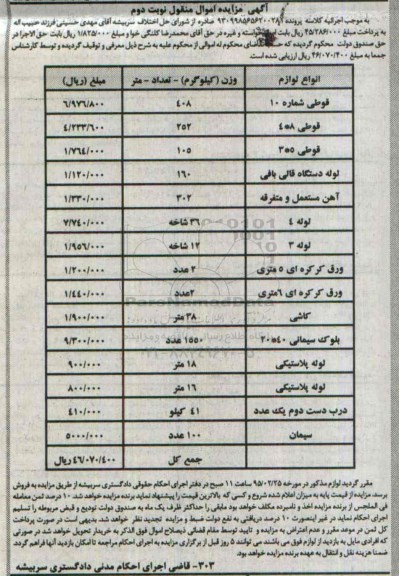 آگهی مزایده اموال منقول نوبت دوم
به موجب اجرائیه کلاسه پرونده ۹۳۰۹۹۸۵۶۵۶۲۰۰۲۸۰ صادره از شورای حل اختلاف سربیشه آقای مهدی حسینی فرزند حبیب اله
به پرداخت مبلغ ۴۵/۲۸۶/۰۰۰ ریال بابت و غیره در حق آقای محمدرضا کلنگی خو و مبلغ ۱/۸۲۵/۰۰۰ ریال بابت حق الاجرا در
حق صندوق دولت محکوم گردیده که محکوم له اموالی از محکوم علیه به شرح ذیل معرفی و توقیف گردیده و توسط کارشناس
جمعا به مبلغ ۴۶/۰۷۰/۴۰۰ ریال ارزیابی شده است.
انواع لوازم وزن (کیلوگرم) - تعداد - متر مبلغ (ریال)
قوطی شماره ۱۰ ۴۰۸ ۶/۹۷۶/۸۰۰
قوطی ۸*۴ ۲۵۲ ۴/۲۳۳/۶۰۰
قوطی ۵*۳ ۱۰۵ ۱/۷۶۴/۰۰۰
لوله دستگاه قالی بافی ۱۶۰ ۱/۱۲۰/۰۰۰
آهن مستعمل و متفرقه ۳۰۲ ۱/۳۳۰/۰۰۰
لوله ۴ ۳۶ شاخه ۷/۷۴۰/۰۰۰
لوله ۳ ۱۲ شاخه ۱/۹۵۶/۰۰۰
ورق کرکره ای ۵ متری ۲ عدد ۱/۲۰۰/۰۰۰
ورق کرکره ای ۶متری ۲عدد ۱/۴۴۰/۰۰۰
کاشی ۳۸ متر ۱/۹۰۰/۰۰۰
بلوک سیمانی ۴۰*۲۰ ۱۵۵۰ عدد ۹/۳۰۰/۰۰۰
لوله پلاستیکی ۱۸ متر ۹۰۰/۰۰۰
لوله پلاستیکی ۱۶ متر ۸۰۰/۰۰۰
درب دست دوم یک عدد ۴۱ کیلو ۴۱۰/۰۰۰
سیمان ۱۰۰ عدد ۵۰۰۰/۰۰۰
جمع کل ۴۶/۰۷۰/۴۰۰ ریال
مقرر گردید لوازم مذکور در مورخه ۹۵/۰۲/۲۵ ساعت ۱۱ صبح در دفتر اجرای احکام حقوقی دادگستری سربیشه از طریق مزایده به فروش
برسد. مزایده از قیمت پایه به میزان اعلام شده شروع و کسی که بالاترین قیمت را پیشنهاد نماید برنده مزایده خواهد شد. ۱۰ درصد ثمن معامله
فی المجلس از برنده مزایده اخذ و نامبرده مکلف خواهد بود مابقی را حداکثر ظرف یک ماه به صندوق دولت تودیع و قبض مربوطه را تسلیم
اجرای احکام نماید در غیر اینصورت ۱۰ درصد دریافتی به نفع دولت ضبط و مزایده تجدید نظر خواهد شد. بدیهی است در صورت پرداخت
کل ثمن در موعد مقرر و عدم اعتراض به مزایده و تایید توسط مقام قضائی ذیصلاح اموال فوق الذکر به خریدار تحویل خواهد شد در صورتی
که افرادی مایل به بازدید از لوازم فوق می باشند می توانند ۵ روز قبل از برگزاری مزایده به اجرای احکام مراجعه تا امکان بازدید آنها فراهم گردد
ضمنا هزینه نقل و انتقال به عهده برنده مزایده خواهد بود.
۳۰۳- قاضی اجرای احکام مدنی دادگستری سربیشه